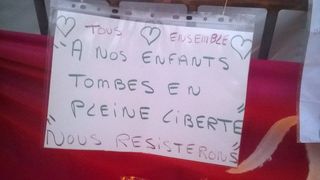 TOUS ENSEMBLE
"A NOS ENFANTS
TOMBES EN
PLEINE LIBERTE"
NOUS RESISTERONS